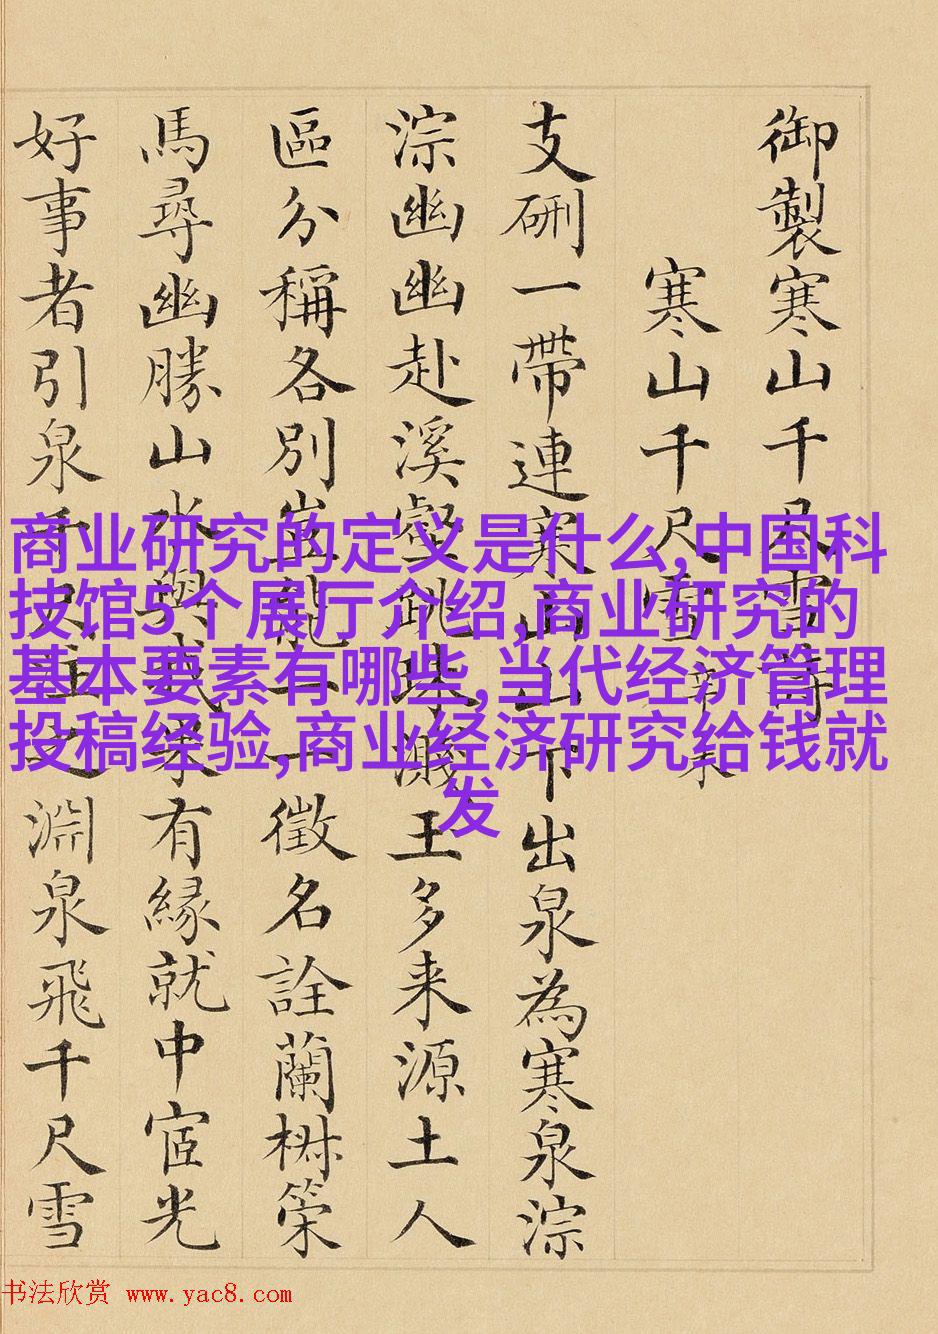 御製寒山千尺雪詩
寒山千尺雪 辛未
支硎一帶連寒山山下出泉為寒泉淙
淙幽幽赴溪壑跳珠濺玉多来源土人
區分稱各別豈能一一徵名詮蘭椒策
馬尋幽勝山水與我有緣就中宦光
好事者引泉千尺注之淵泉飛千尺雪
商业研究的定义是什么,中国科
技馆5个展厅介绍,商业研究的
基本要素有哪些,当代经济管理
投稿经验,商业经济研究给钱就
发
书法欣赏 www.yac8.com